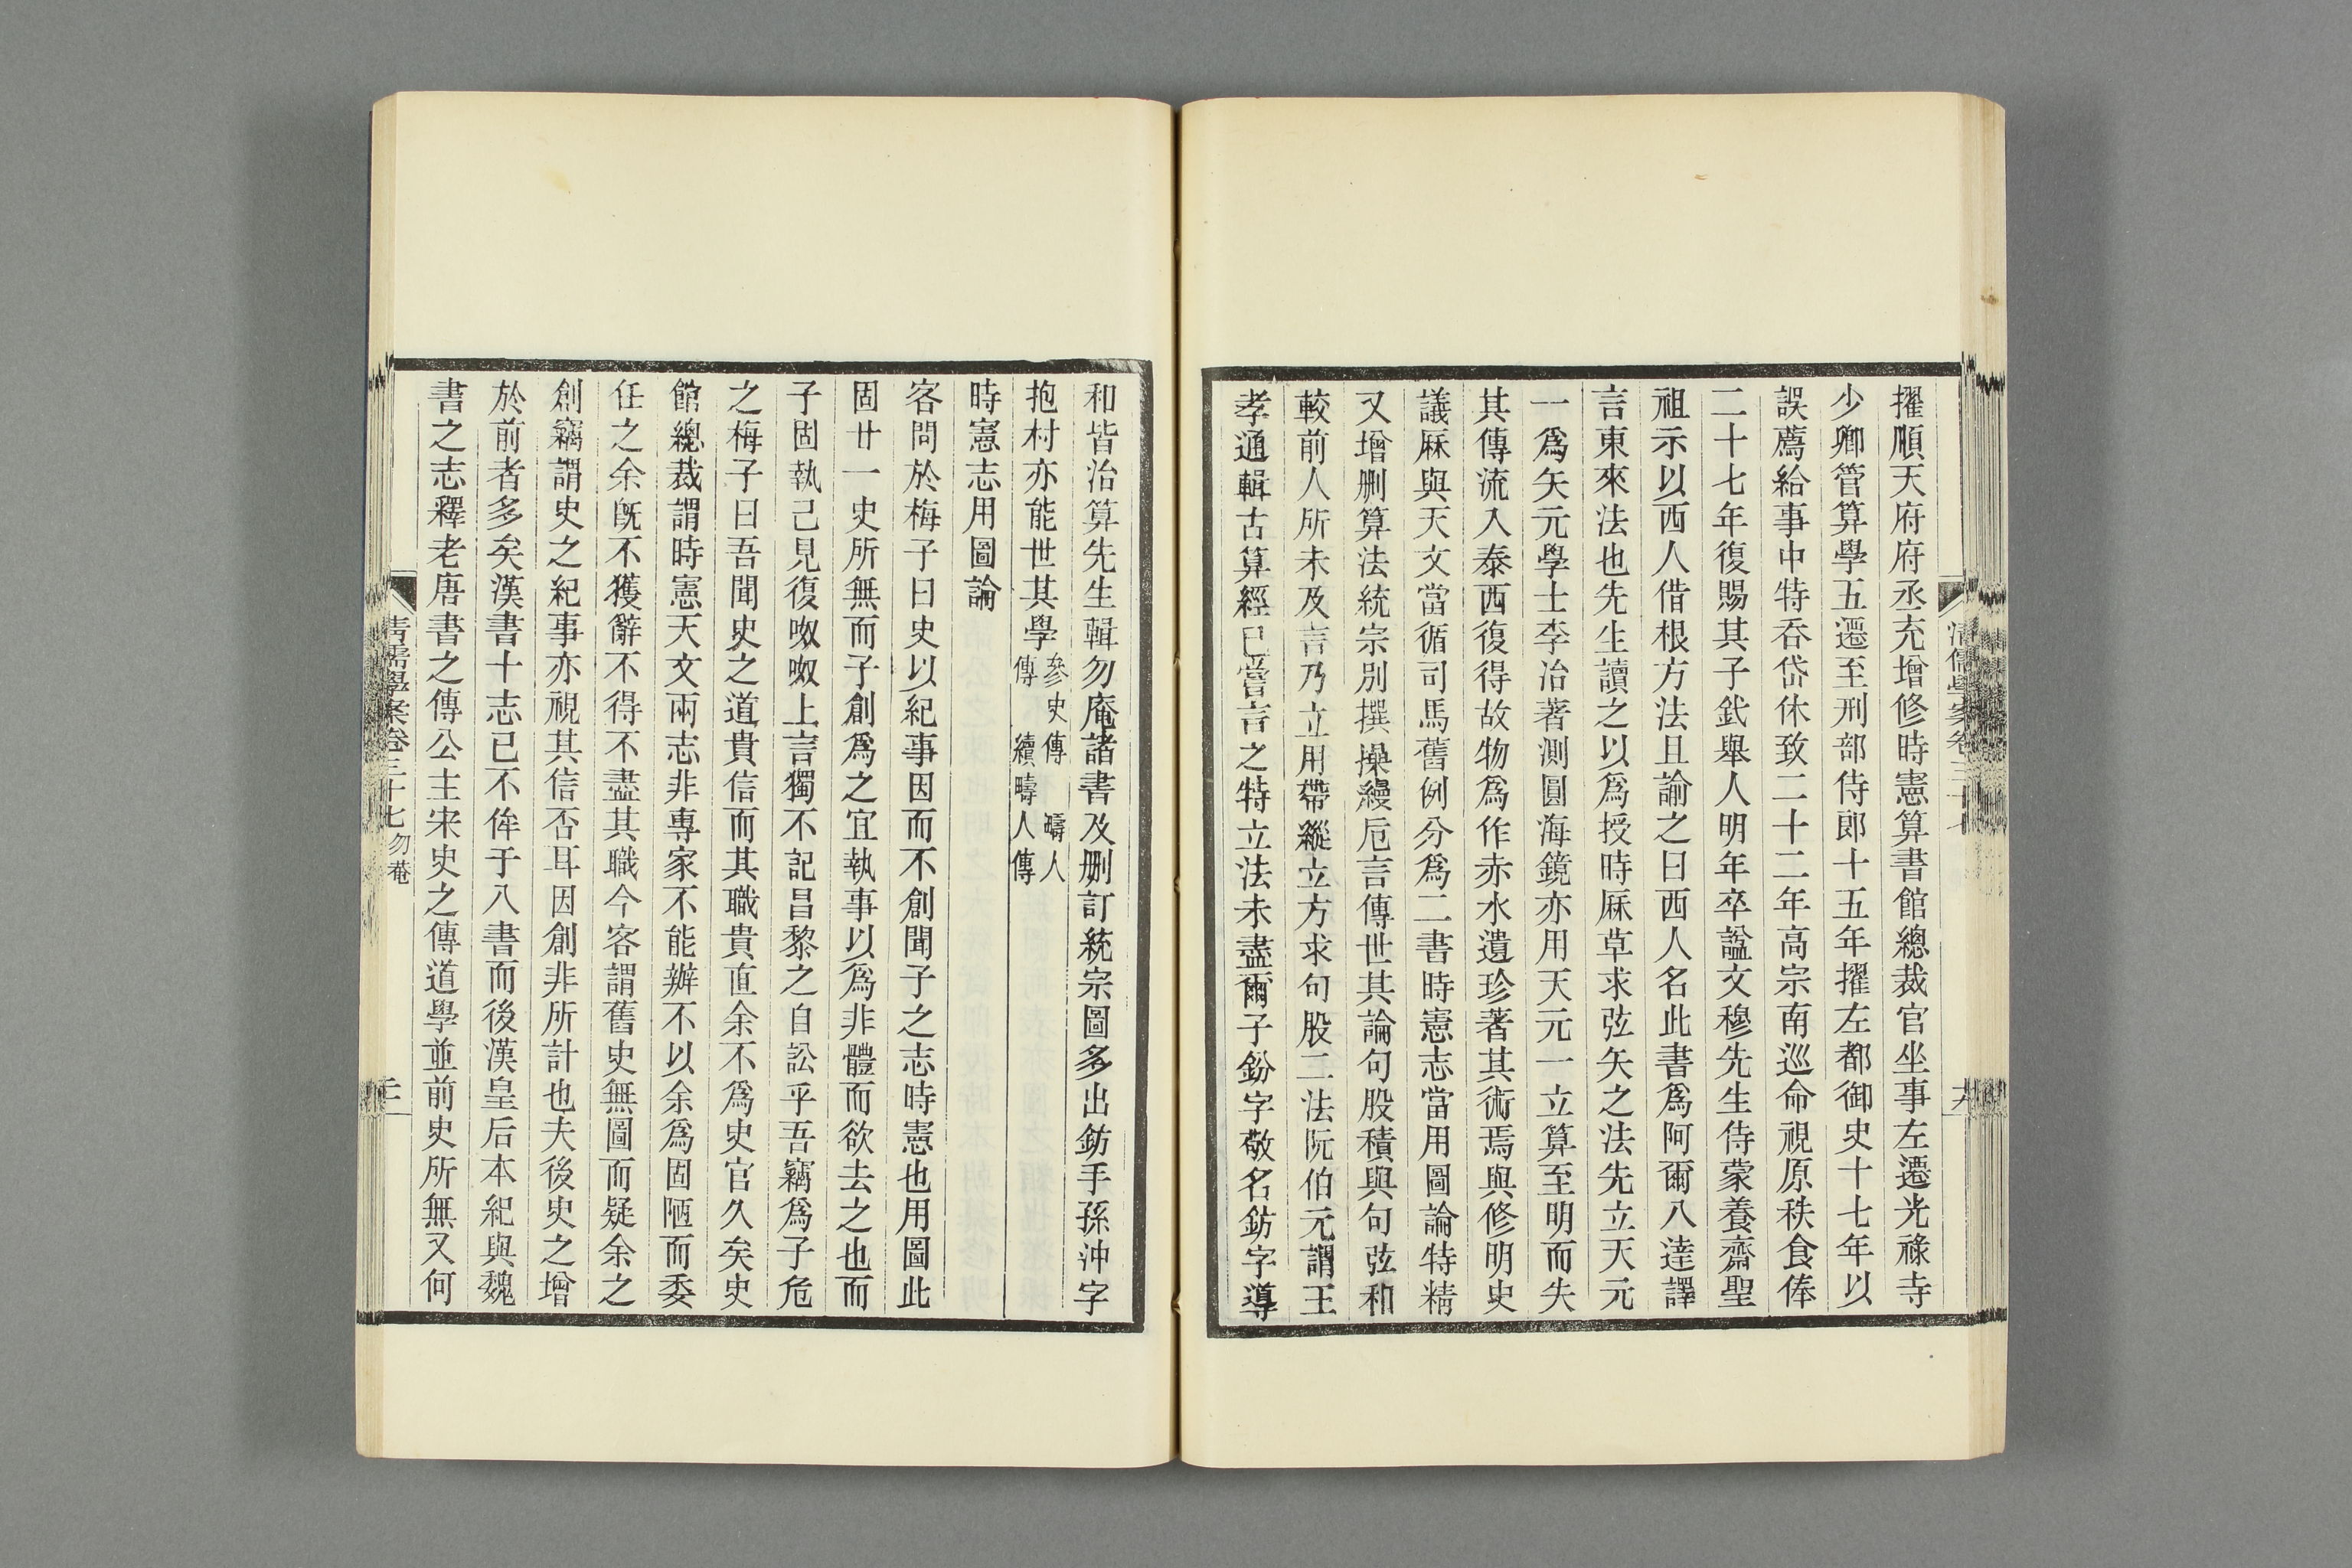 擢順天府府丞充增修時憲算書館總裁官坐事左遷光祿寺
少卿管算學五遷至刑部侍郎十五年擢左都御史十七年以
誤薦給事中特吞岱休致二十二年高宗南巡命視原秩食俸
二十七年復賜其子鈛舉人明年卒諡文穆先生侍蒙養齋聖
祖示以西人借根方法且諭之曰西人名此書爲阿爾八達譯
言東來法也先生讀之以爲授時厤草求弦矢之法先立天元
一爲矢元學士李冶著測圓海鏡亦用天元一立算至明而失
其傳流入泰西復得故物爲作赤水遺珍著其術焉與修明史
議厤與天文當循司馬舊例分爲二書時憲志當用圖論特精
又增删算法統宗別撰操縵卮言傳世其論句股積與句弦和
較前人所未及言乃立用帶縱立方求句股二法阮伯元謂王
孝通輯古算經已嘗言之特立法未盡爾子鈖字敬名鈁字導
和皆治算先生輯勿庵諸書及删訂統宗圖多出鈁手孫沖字
抱村亦能世其學參史傳 疇人傳 續疇人傳
時憲志用圖論
客問於梅子曰史以紀事因而不創聞子之志時憲也用圖此
固廿一史所無而子創爲之宜執事以爲非體而欲去之也而
子固執己見復呶呶上言獨不記昌黎之自訟乎吾竊爲子危
之梅子曰吾聞史之道貴信而其職貴直余不爲史官久矣史
館總裁謂時憲天文兩志非專家不能辦不以余爲固陋而委
任之余旣不獲辭不得不盡其職今客謂舊史無圖而疑余之
創竊謂史之紀事亦視其信否耳因創非所計也夫後史之增
於前者多矣漢書十志已不侔于八書而後漢皇后本紀與魏
書之志釋老唐書之傳公主宋史之傳道學並前史所無又何
清儒學案卷三十七 勿菴